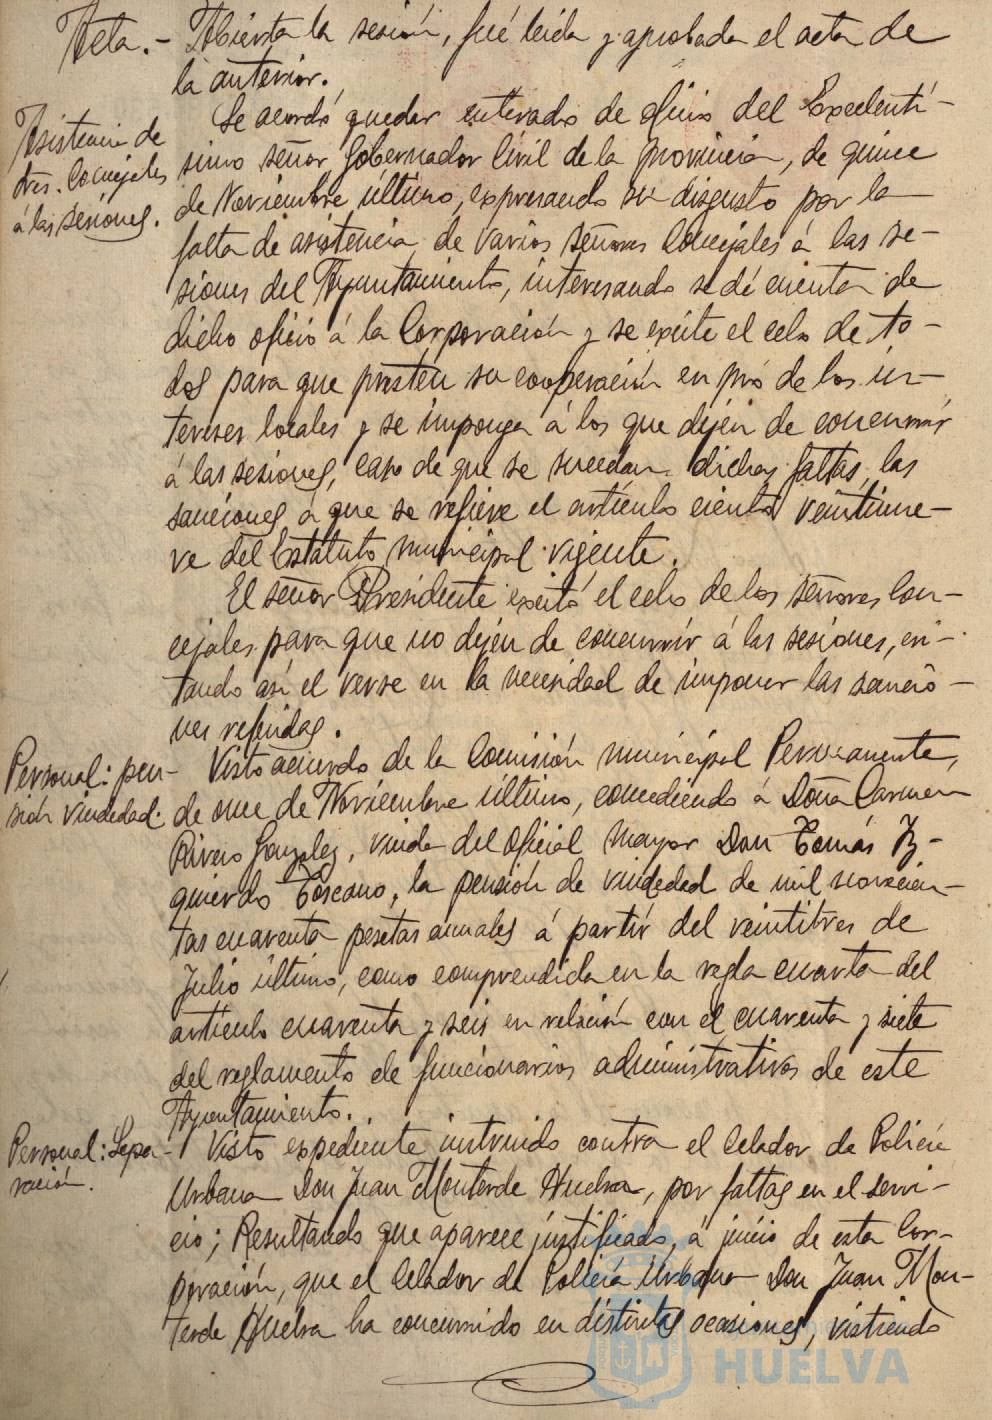 Acta.- Abierta la sesión, fué leida y aprobada el acta de
la anterior.
Asistencia de
tres. Concejales
á las sesiones.
Se acordó quedar enterado de oficio del Excelentí-
simo señor Gobernador Civil de la provincia, de quince
de Noviembre último, expresando su disgusto por la
falta de asistencia de varios señores Concejales á las se-
siones del Ayuntamiento, interesando se dé cuenta de
dicho oficio á la Corporación y se excite el celo de to-
dos para que presten su cooperación en pró de los in-
tereses locales y se imponga á los que dejen de concurrir
á las sesiones, caso de que se sucedan dichas faltas, las
sanciones a que se refiere el artículo ciento veintinue-
ve del Estatuto municipal vigente.
El señor Presidente excitó el celo de los señores Con-
cejales para que no dejen de concurrir á las sesiones, evi-
tando así el verse en la necesidad de imponer las sancio-
nes referidas.
Personal: pen-
sión viudedad.
Visto acuerdo de la Comisión municipal Permanente,
de once de Noviembre último, concediendo á Doña Carmen
Rivero Gonzalez, viuda del Oficial mayor Don Tomás Iz-
quierdo Toscano, la pensión de viudedad de mil novecien-
tas cuarenta pesetas anuales á partir del veintitres de
Julio último, como comprendida en la regla cuarta del
artículo cuarenta y seis en relación con el cuarenta y siete
del reglamento de funcionarios administrativos de este
Ayuntamiento.
Personal: Sepa-
ración.
Visto expediente instruido contra el Celador de Policía
Urbana Don Juan Monterde Huelva, por faltas en el servi-
cio; Resultando que aparece justificado, á juicio de esta Cor-
poración, que el Celador de Policía Urbana Don Juan Mon-
terde Huelva ha concurrido en distintas ocasiones, vistiendo
HUELVA